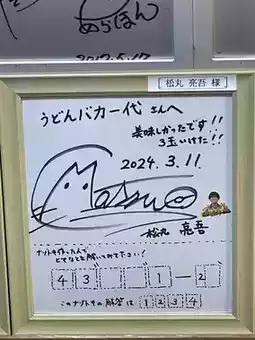 めらほん
2017.5.17
[松丸 亮吾 様]
うどんバカ一代 さんへ
美味しかったです!!
3玉いけた!!
2024.3.11.
Matsu
松丸 亮吾
ナゾトキ作ったんで
ひでなとを解いてみて下さい!
4 3 1 1 1 - 2
このナゾトキの解答は 1 2 3 4